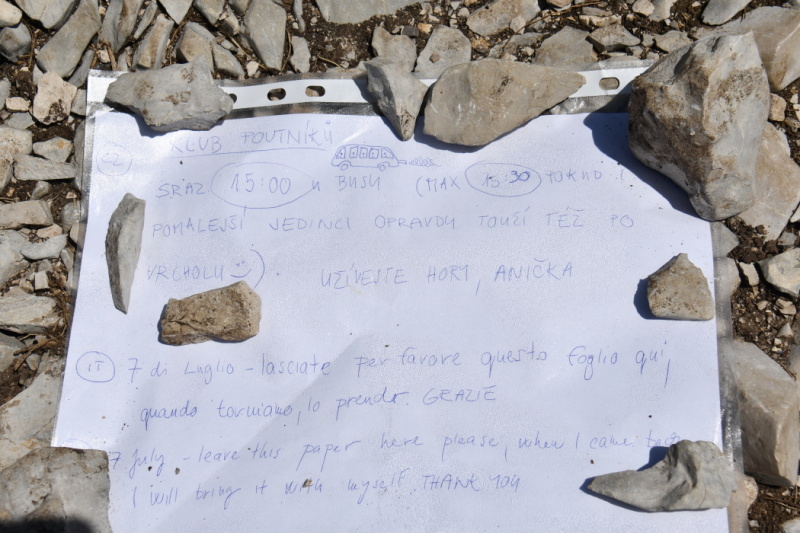 CZ KLUB POUTNÍKŮ
SRAZ 15:00 U BUSU (MAX 15:30 POKUD
POMALEJŠÍ JEDINCI OPRAVDU TOUŽÍ TÉŽ PO
VRCHOLU :)). UŽÍVEJTE HORY, ANIČKA
IT 7 di Luglio - lasciate per favore questo foglio qui,
quando torniamo, lo prendo. GRAZIE
7 July - leave this paper here please, when I came back
I will bring it with myself. THANK YOU